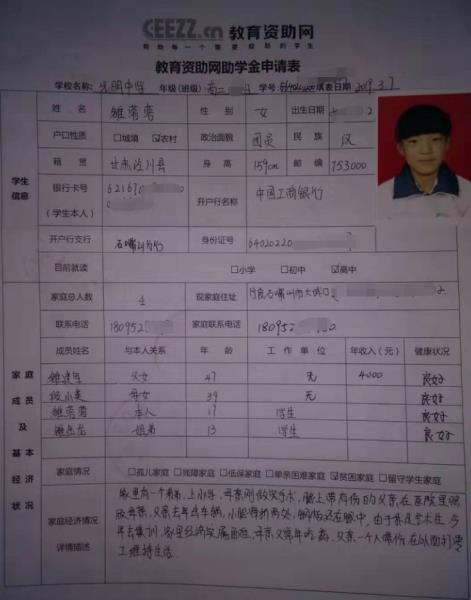 CEEZZ.cn 教育资助网
帮助每一个需要帮助的学生
教育资助网助学金申请表
学校名称: 光明中学 年级(班级) 高二 学号: 填表日期 2019.3.7
姓名 雒蓉蓉 性别 女 出生日期
户口性质 □城镇 ☑农村 政治面貌 团员 民族 汉
籍贯 甘肃泾川县 身高 159cm 邮编 753000
学生信息
银行卡号 (学生本人) 62169 开户行名称 中国工商银行
开户行支行 石嘴山分行 身份证号 64020220
目前就读 □小学 □初中 ☑高中
家庭总人数 4 现家庭住址 宁夏石嘴山市大武口
联系电话 18095 家庭联系电话 180952
家庭成员及基本经济状况
成员姓名 与本人关系 年龄 工作单位 年收入(元) 健康状况
父女 47 无 4000 良好
段小英 母女 39 无 良好
雒蓉蓉 本人 17 学生 良好
姐弟 13 学生 良好
家庭情况 □孤儿家庭 □残障家庭 □低保家庭 □单亲困难家庭 ☑贫困家庭 □留守学生家庭
家庭经济情况详情描述
家里有一个弟弟,上小学,母亲刚做完手术,腿上带有伤的父亲在医院里照
顾母亲,父亲去年出车祸,小腿骨折两处,钢板还在腿中,由于我是艺术生,今
年去集训,家里经济实属困难,母亲又常年吃药,父亲一个人带伤在外面打零
工维持生活.